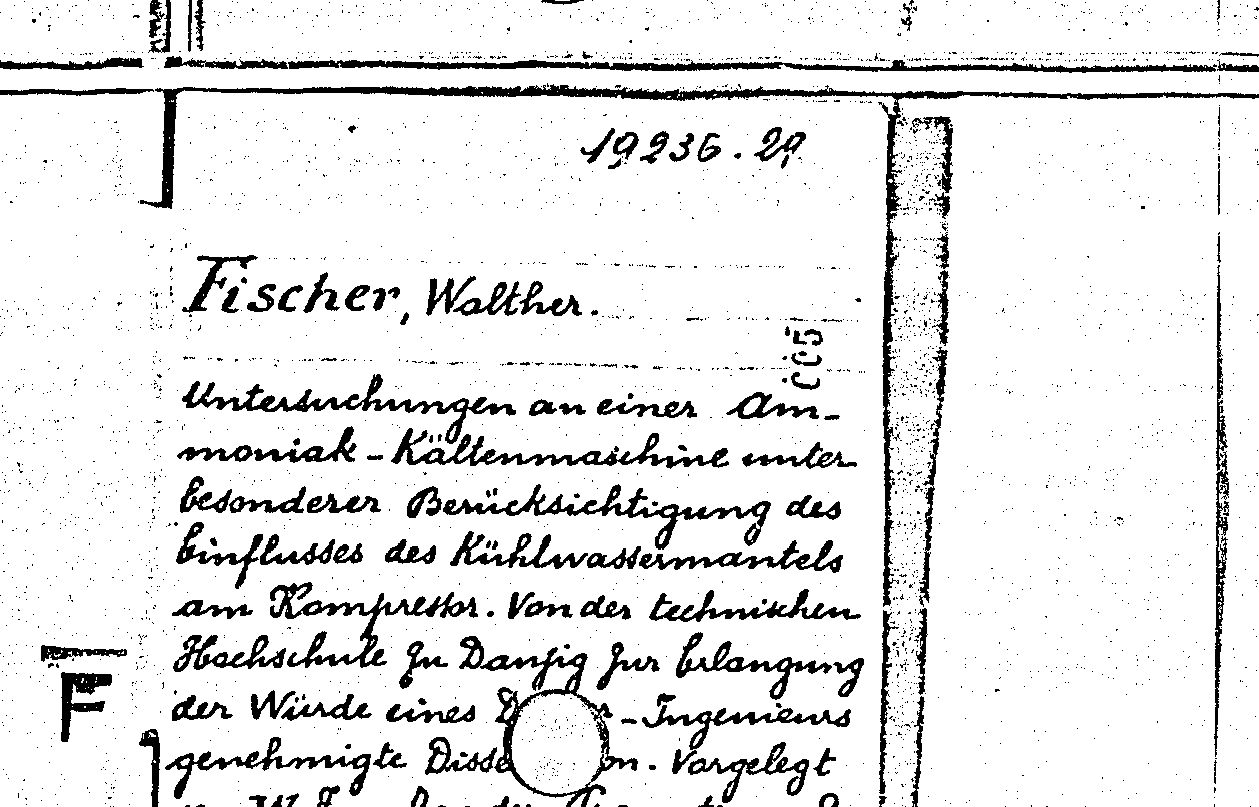 19236.29
Fischer, Walther.
005
Untersuchungen an einer Am-
moniak-Kältenmaschine unter
besonderer Berücksichtigung des
Einflusses des Kühlwassermantels
am Kompressor. Von der technischen
Hochschule zu Danzig zur Erlangung
F
der Würde eines D r-Ingenieurs
genehmigte Disse on. Vorgelegt